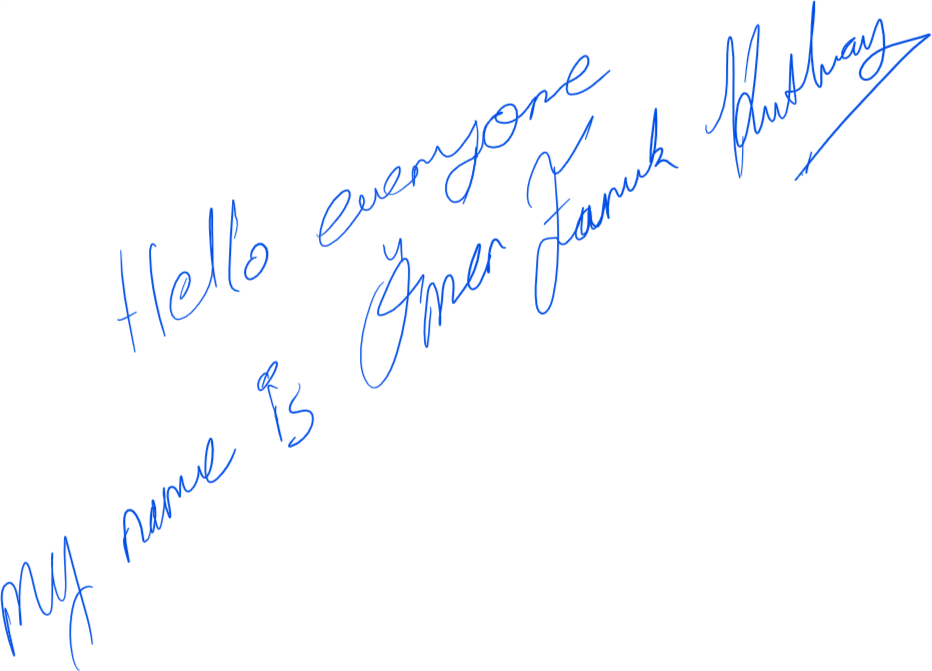 Hello everyone
my name is Ömer Faruk